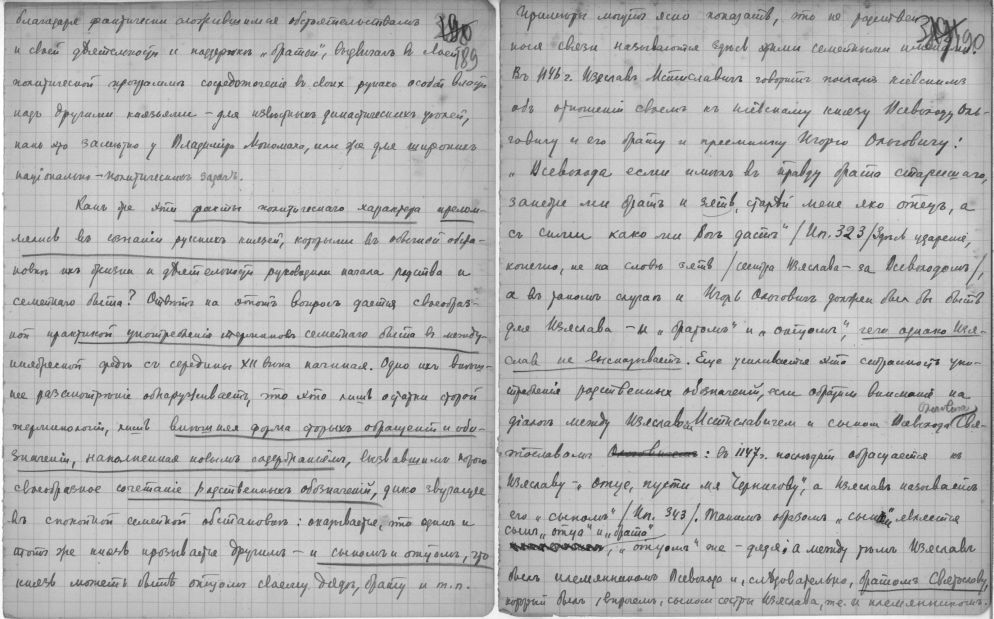 благодаря фактически сложившимся обстоятельствам
189
и своей деятельности и поддержке „братьи“, выдвигал в своей
политической программе сосредоточение в своих руках особой власти
над другими князьями – для известных династических целей,
как это заметно у Владимира Мономаха, или же для широких
национально-политических задач.
Как же эти факты политического характера прелом-
лялись в сознании русских князей, которыми в обычной обста-
новке их жизни и деятельности руководили начала родства и
семейного быта? Ответ на этот вопрос дается своеобраз-
ной практикой употребления терминов семейного быта в между-
княжеской среде с середины XII века начиная. Одно их внеш-
нее разсмотрение обнаруживает, что это лишь остатки старой
терминологии, лишь внешняя форма старых обращений и обо-
значений, наполненная новым содержанием, вызвавшим порою
своеобразное сочетание родственных обозначений, дико звучащее
в спокойной семейной обстановке: оказывается, что один и
тот же князь прозывается другим – и сыном и отцом, что
князь может быть отцом своему дяде, брату и т.п.
Примеры могут ясно показать, что не родствен-
190
ныя связи называются здесь этими семейными именами.
Въ 1146 г. Изяслав Мстиславич говорит послам киевским
об отношении своем к киевскому князю Всеволоду Оль-
говичу и его брату и преемнику Игорю Ольговичу:
„Всеволода есми имел в правду брата старишаго,
занеже ми брат и зять, старей мене яко отець, а
с сими како ми Бог даст“ /Ип. 323/ Здесь ударение,
конечно, не на слове зять /сестра Изяслава – за Всеволодом/,
а в таком случае и Игорь Ольгович должен был бы быть
для Изяслава – и „братом“ и „отцом“, чего однако Изя-
слав не высказывает. Еще усиливается эта странность упо-
требления родственных обозначений, если обратим внимание на
диалог между Изяславом Мстиславичем и сыном Всеволода Ольговича Свя-
тославом: в 1147 г. последний обращается к
Изяславу – „отце, пусти мя Чернигову“, а Изяслав называет
его „сыном“ /Ип. 343/. Таким образом „сын“ является
сын „отца“ и „брата“
, „отцом“ же – дядя; а между тем Изяслав
был племянником Всеволода и, следовательно, братом Святославу,
который был, впрочем, сыном сестры Изяслава, т.е. и племянником.